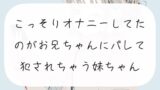 こっそりオナニーしてた
のがお兄ちゃんにバレて
犯されちゃう妹ちゃん